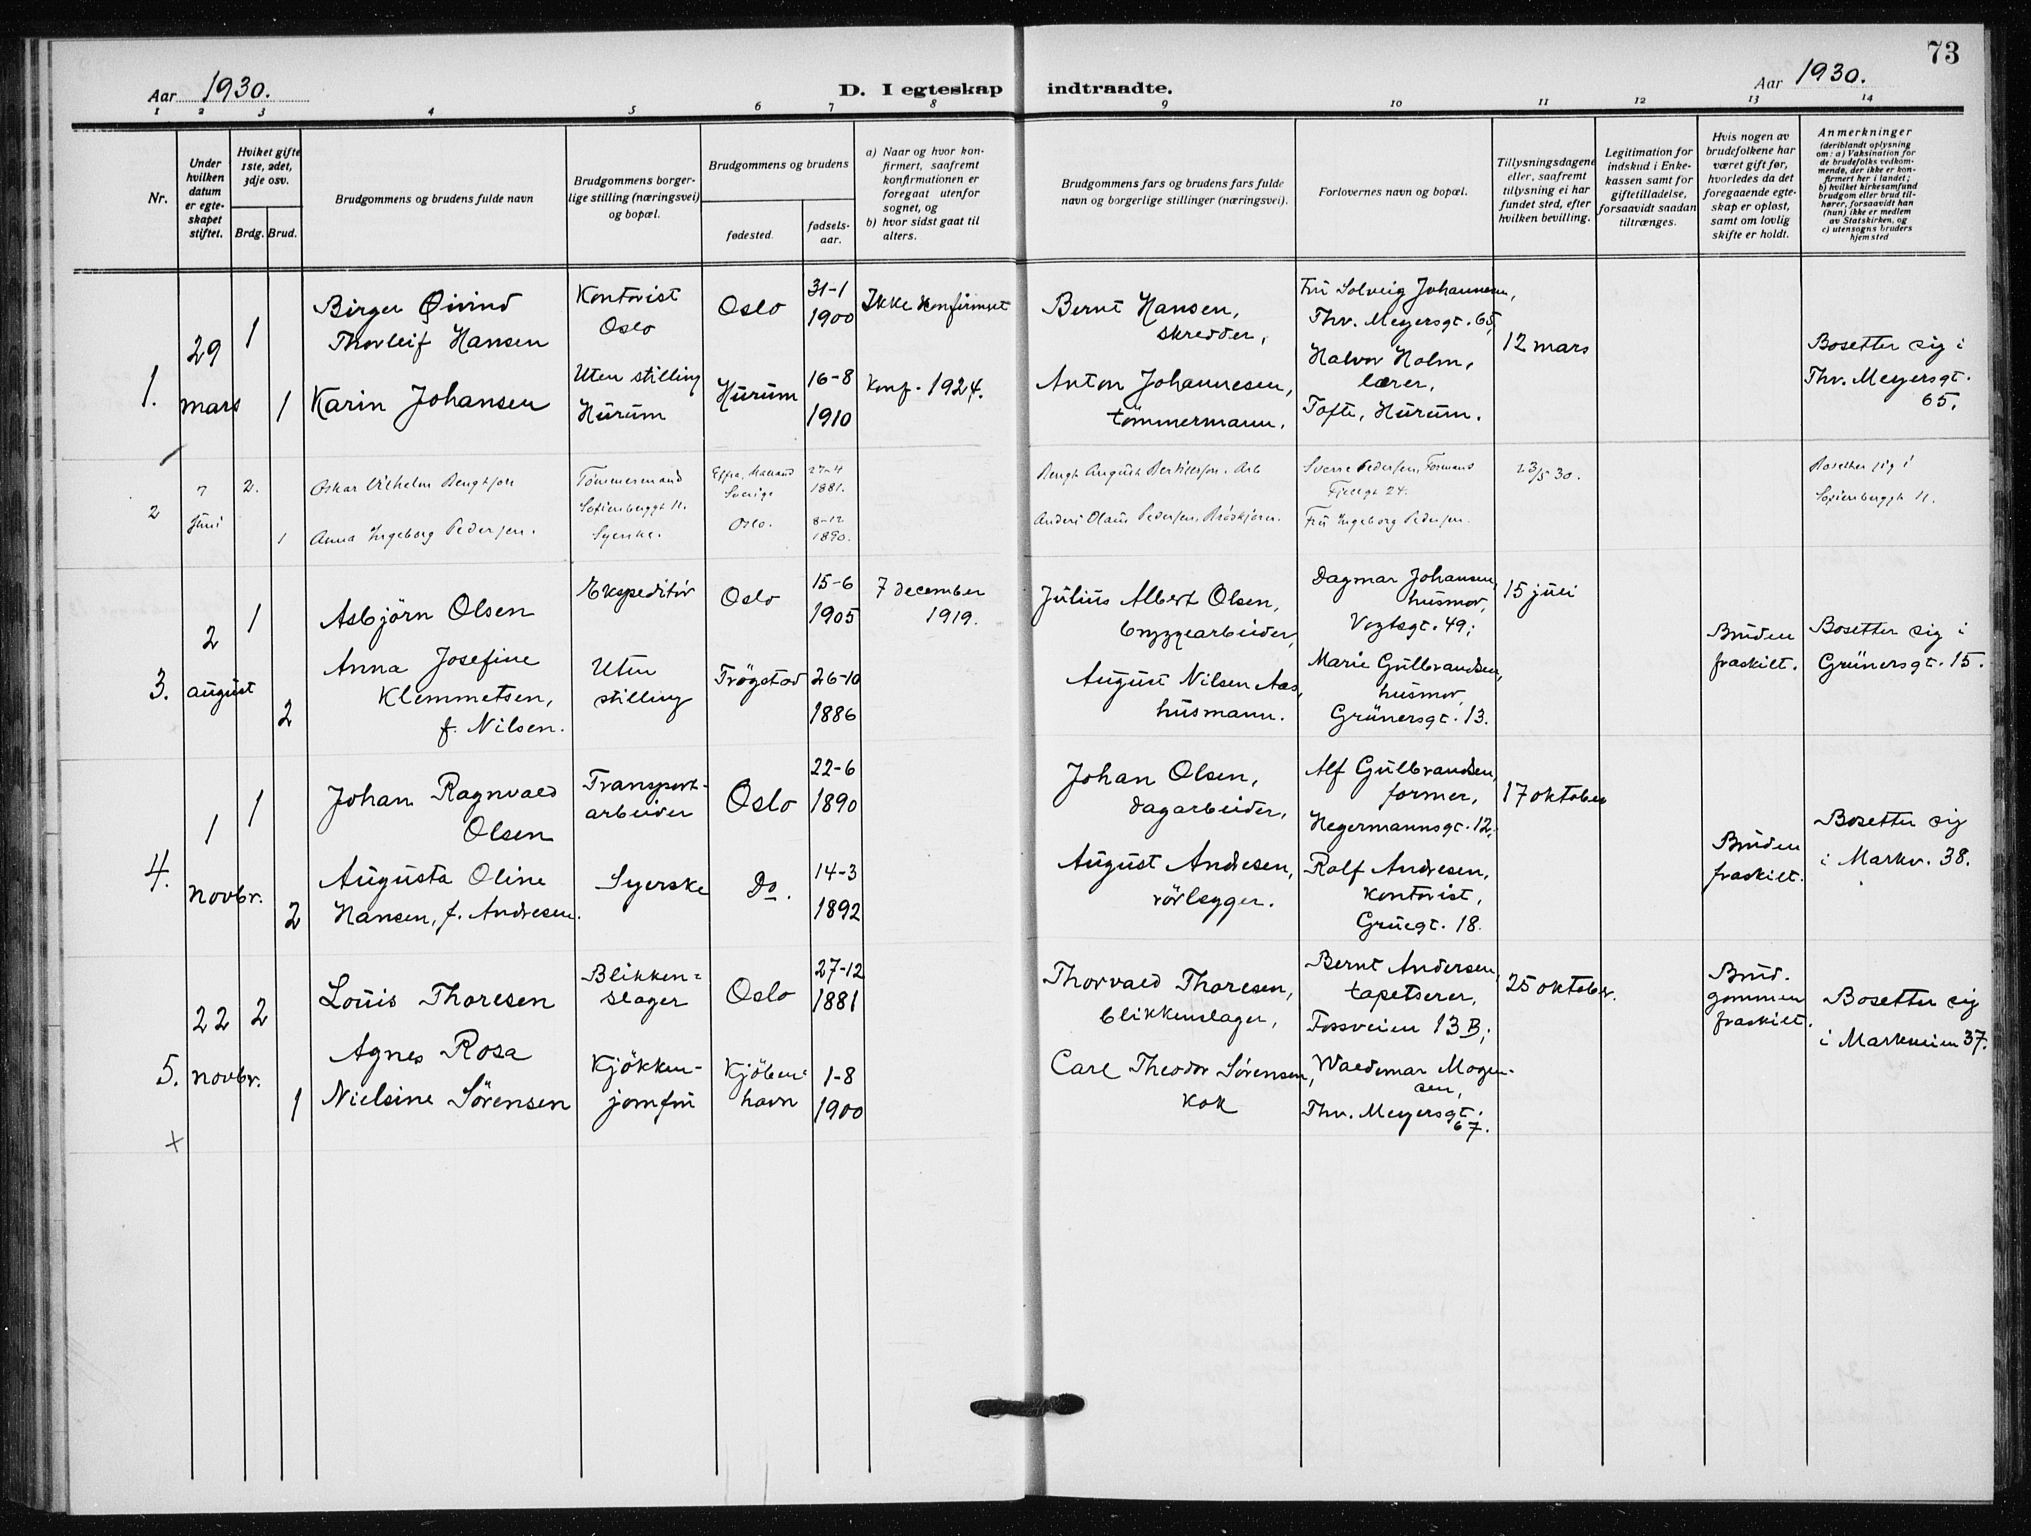 73
Aar 1930.
D. I egteskap indtraadte.
Aar 1930.
1 2 3 4 5 6 7 8 9 10 11 12 13 14
Nr.
Under hvilken datum er egte-skapet stiftet.
Hviket gifte 1ste, 2det, 3dje osv.
Brdg. Brud.
Brudgommens og brudens fulde navn
Brudgommens borger-lige stilling (næringsvei) og bopæl.
Brudgommens og brudens
fødested.
fødsels-aar.
a) Naar og hvor kon-firmert, saafremt konfirmationen er foregaat utenfor sognet, og
b) hvor sidst gaat til alters.
Brudgommens fars og brudens fars fulde navn og borgerlige stillinger (næringsvei).
Forlovernes navn og bopæl.
Tillysningsdagene eller, saafremt tillysning ei har fundet sted, efter hvilken bevilling.
Legitimation for indskud i Enke-kassen samt for giftetilladelse, forsaavidt saadan tiltrænges.
Hvis nogen av brudefolkene har været gift før, hvorledes da det foregaaende egte-skap er opløst, samt om lovlig skifte er holdt.
Anmerkninger
(deriblandt oplysning om: a) Vaksination for de brudefolks vedkom-mende, der ikke er kon-firmert her i landet; b) hvilket kirkesamfund brudgom eller brud til-hører, forsaavidt han (hun) ikke er medlem av Statskirken, og c) utensogns bruders hjemsted
1.
29 mars
1
Birger Øivind
Thorleif Hansen
Kontorist
Oslo
Oslo
31-1
1900
Ikke konfirmert
Bernt Hansen,
skredder,
Fru Solveig Johannesen,
Thv. Meyersgt. 65,
12 mars
Bosetter sig i
Thv. Meyersgt.
65.
1
Karin Johansen
Uten stilling
Hurum
Hurum
16-8
1910
Konf. 1924.
Anton Johannesen,
tömmermann.
Halvor Holm,
lærer,
Tofte, Hurum.
2
7
Juni
2.
Oskar Vilhelm Bengtson
Tømmermand
Sofienberggt 11.
Halland
Sverige
27-4
1881.
Bengt August
Sverre Pedersen, Formans
24.
23/5 30.
Bosetter sig i
Sofienberggt 11.
1
Anna Ingeborg Pedersen.
Syerske.
Oslo.
8-12
1890.
Anders Olaus Pedersen,
Fru Ingeborg Pedersen.
3.
2
august
1
Asbjörn Olsen
Ekspeditör
Oslo
15-6
1905
7 december
1919.
Julius Albert Olsen,
bryggearbeider,
Dagmar Johansen,
husmor,
Vogtsgt. 49;
15 juli
Bruden
fraskilt.
Bosetter sig i
Grünersgt. 15.
2
Anna Josefine
Klemmetsen,
f. Nilsen.
Uten
stilling
Trögstad
26-10
1886
August Nilsen Aas,
husmann.
Marie Gulbrandsen,
husmor,
Grünersgt. 13.
4.
1
novbr.
1
Johan Ragnvald
Olsen
Transport-
arbeider
Oslo
22-6
1890
Johan Olsen,
dagarbeider,
Alf Gulbrandsen,
former,
Hegermannsgt. 12;
17 oktober
Bruden
fraskilt.
Bosetter sig
i Markv. 38.
2
Augusta Oline
Hansen, f. Andresen.
Syerske
Do.
14-3
1892
August Andresen,
rörlegger.
Rolf Andresen,
kontorist,
Gruegt. 18.
5.
22
novbr.
2
Louis Thoresen
Blikken=
slager
Oslo
27-12
1881
Thorvald Thoresen,
blikkenslager,
Bernt Andersen,
tapetserer,
Fossveien 13 B;
25 oktober.
Brud-
gommen
fraskilt.
Bosetter sig
i Markveien 37.
1
Agnes Rosa
Nielsine Sörensen
Kjökken-
jomfru
Kjöben-
havn
1-8
1900
Carl Theodor Sörensen,
Kok
Waldemar Mogen-
sen,
Thv. Meyersgt.
67.
x